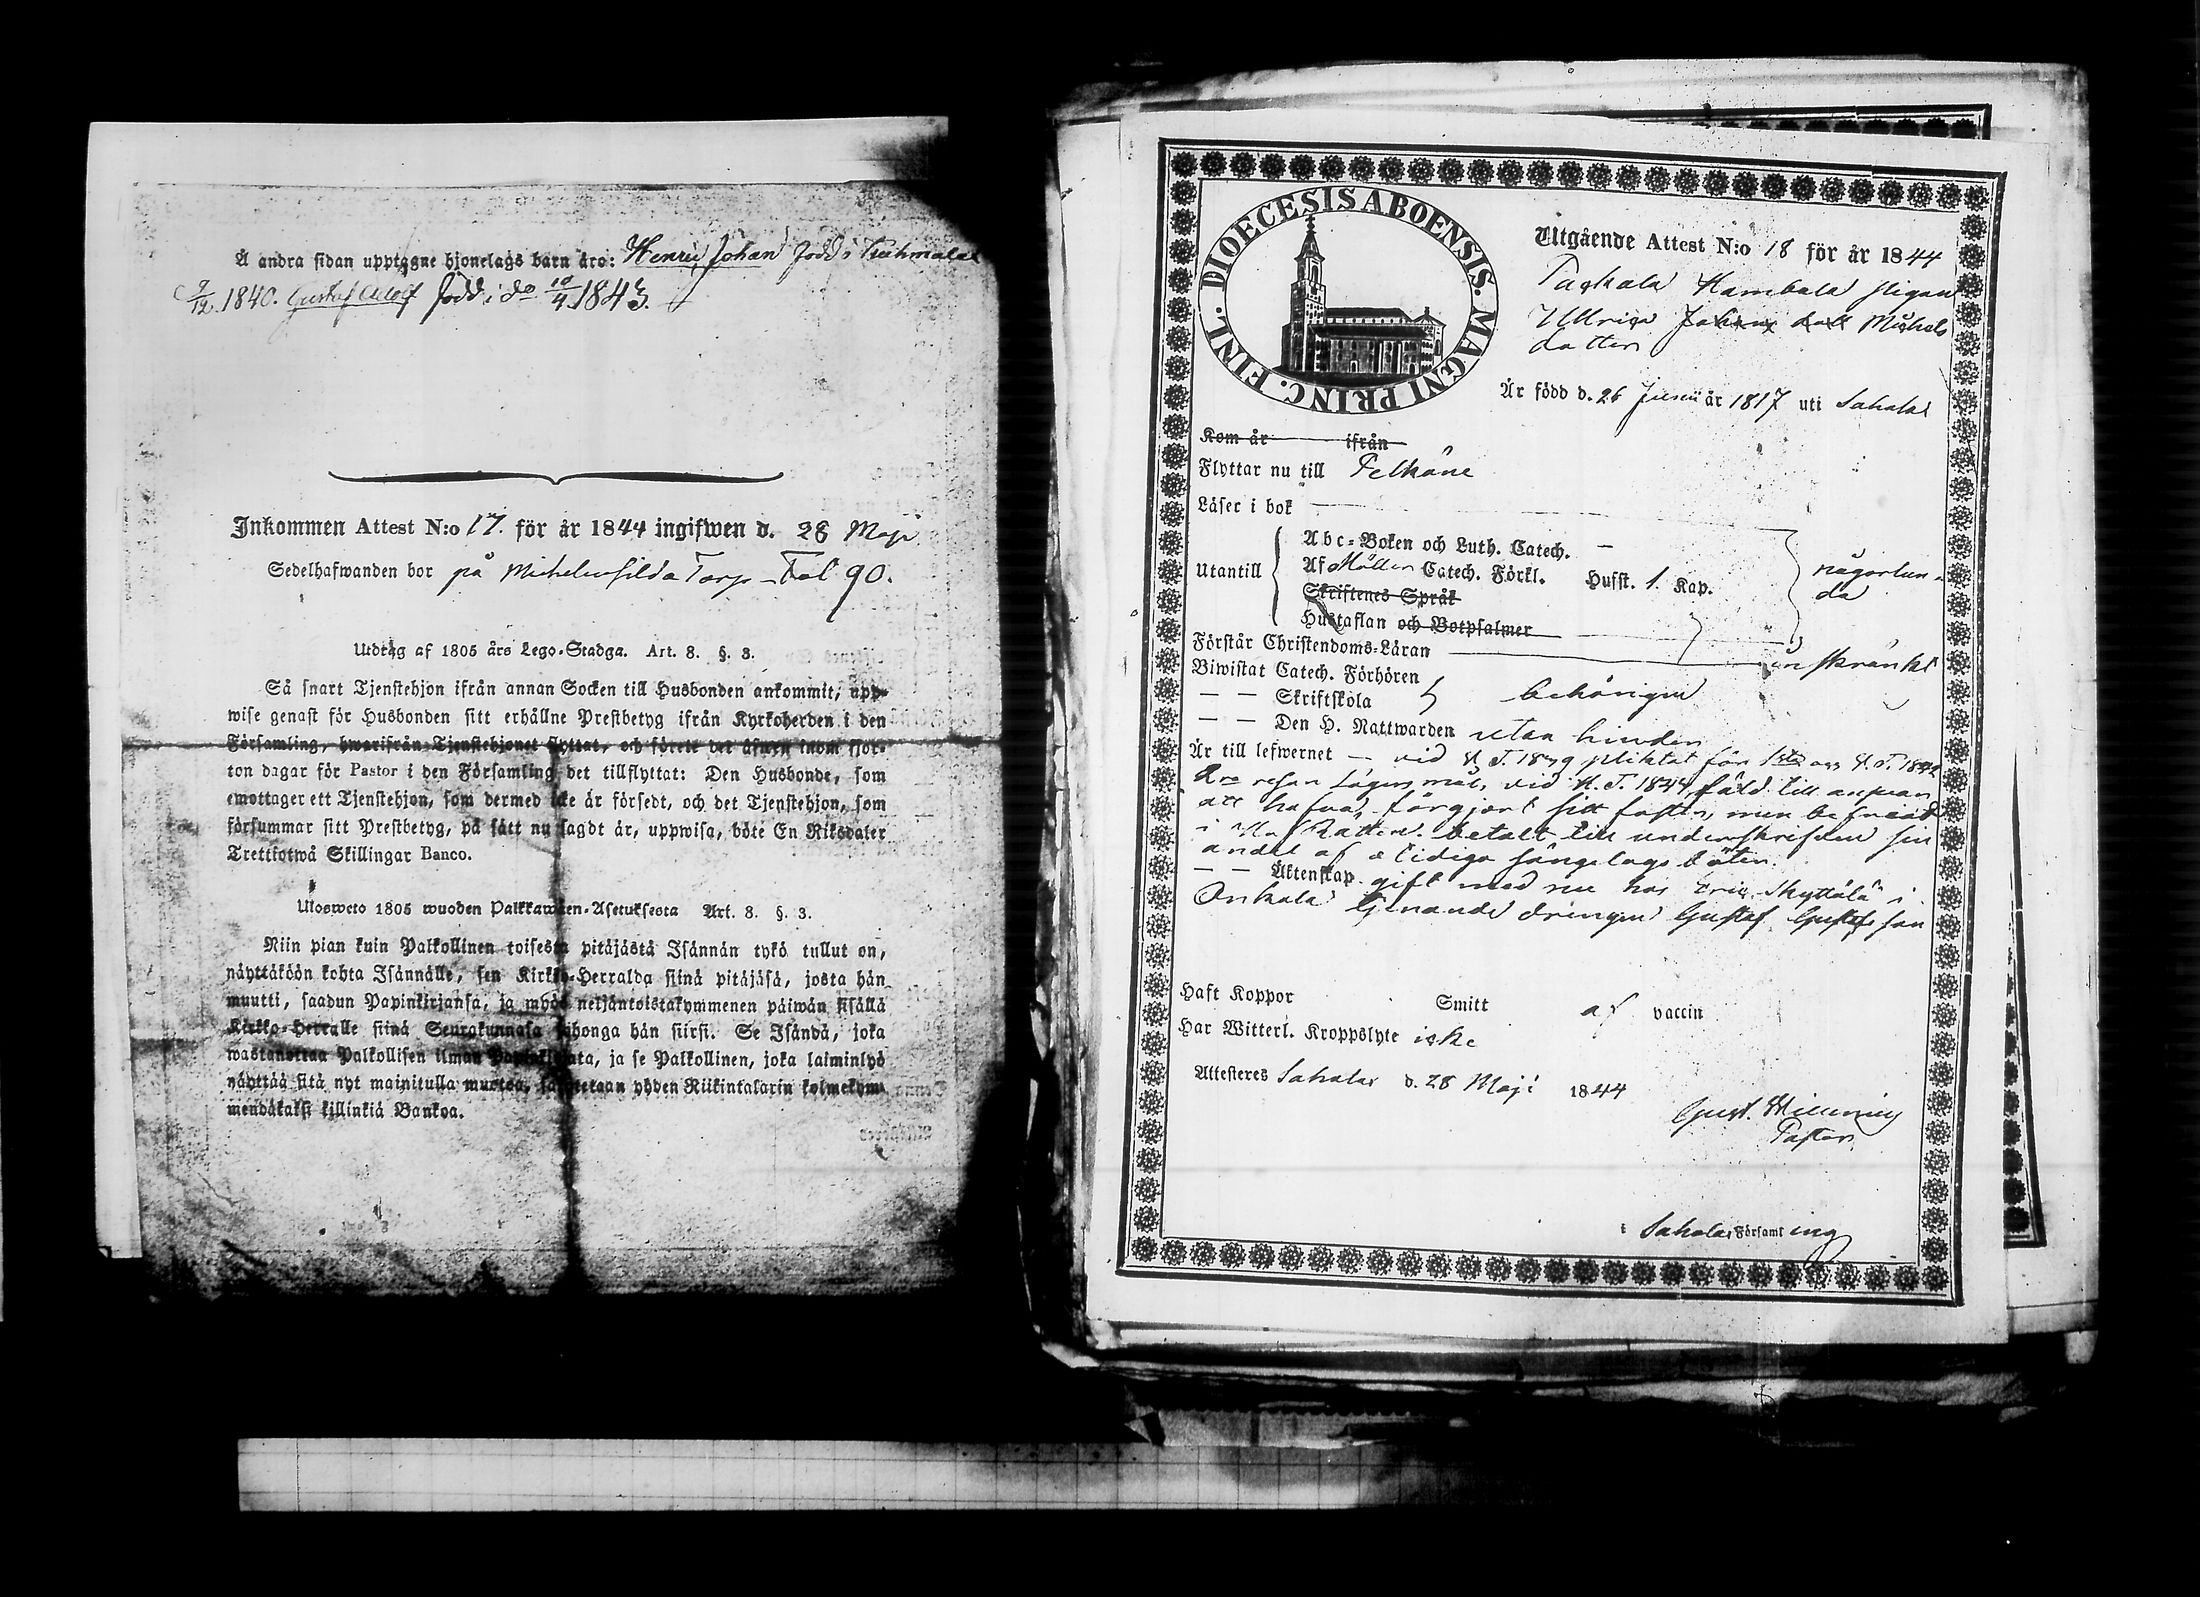 Å andra sidan upptagne hjonelags barn äro: Henric Johan född i Kuhmalax
9/12 1840. Gustaf Adolf född i do 10/4 1843.
Inkommen Attest N:o 17. för år 1844 ingifwen d. 28 Maji
Sedelhafwanden bor på Michelensilda Torp – Fol 90.
Utdrag af 1805 års Lego-Stadga. Art. 8. §. 3.
Så snart Tjenstehjon ifrån annan Socken till Husbonden ankommit, upp-
wise genast för Husbonden sitt erhållne Prestbetyg ifrån Kyrkoherden i den
Församling, hwarifrån Tjenstehjonet flyttat, och förete det äfwen inom fjor-
ton dagar för Pastor i den Församling det tillflyttat: Den Husbonde, som
emottager ett Tjenstehjon, som dermed icke är försedt, och det Tjenstehjon, som
försummar sitt Prestbetyg, på sätt nu sagdt är, uppwisa, böte En Riksdaler
Trettiotwå Skillingar Banco.
Ulosweto 1805 wuoden Palkkawäen-Asetuksesta Art. 8. §. 3.
Niin pian kuin Palkollinen toisesta pitäjästä Isännän tykö tullut on,
näyttäköön kohta Isännälle, sen Kirkko-Herralda siinä pitäjäsä, josta hän
muutti, saadun Papinkirjansa, ja myös neljäntoistakymmenen päiwän sisällä
Kirkko-Herralle siinä Seurakunnasa johonga hän siirsi. Se Isändä, joka
wastanottaa Palkollisen ilman Papinkirjata, ja se Palkollinen, joka laiminlyö
näyttää sitä nyt mainitulla muotoa, sakotetaan yhden Riikintalarin kolmekym-
mendäkaksi killinkiä Bankoa.
DIOECESIS ABOENSIS. MAGNI PRINC. FINL.
Utgående Attest N:o 18 för år 1844
Pigan
Ullrica Michels
dotter
Är född d. 26 Junii år 1817 uti Sahalax
Kom år ifrån
Flyttar nu till Pelkäne
Läser i bok
Utantill
Abc-Boken och Luth. Catech. –
Af Möllers Catech. Förkl. Husst. 1 Kap.
Skriftenes Språk
Hustaflan och Botpsalmer
någorlun-
da
Förstår Christendoms-Läran inskränkt
Biwistat Catech. Förhören
— — Skriftskola behörigen
— — Den H. Nattwarden utan hinder
Är till lefwernet – vid H. T. 1839 pliktat för 1sta och H. T. 1842
2ra resan Lägersmål, vid H. T. 1844 fäld till answar
att hafva förgjort sitt foster, men befriad
i Rätten. betalt till underskrifven sin
andel af otidiga sängelags böter.
— — Äktenskap gift med nu hos Eric Skyttälä i
Onkala tjenande drängen Gustaf Gustafsson
Haft Koppor Smitt af vaccin
Har Witterl. Kroppslyte icke
Attesteres Sahalax d. 28 Maji 1844
Gust. Wilenius
Pastor
i Sahalax Församling